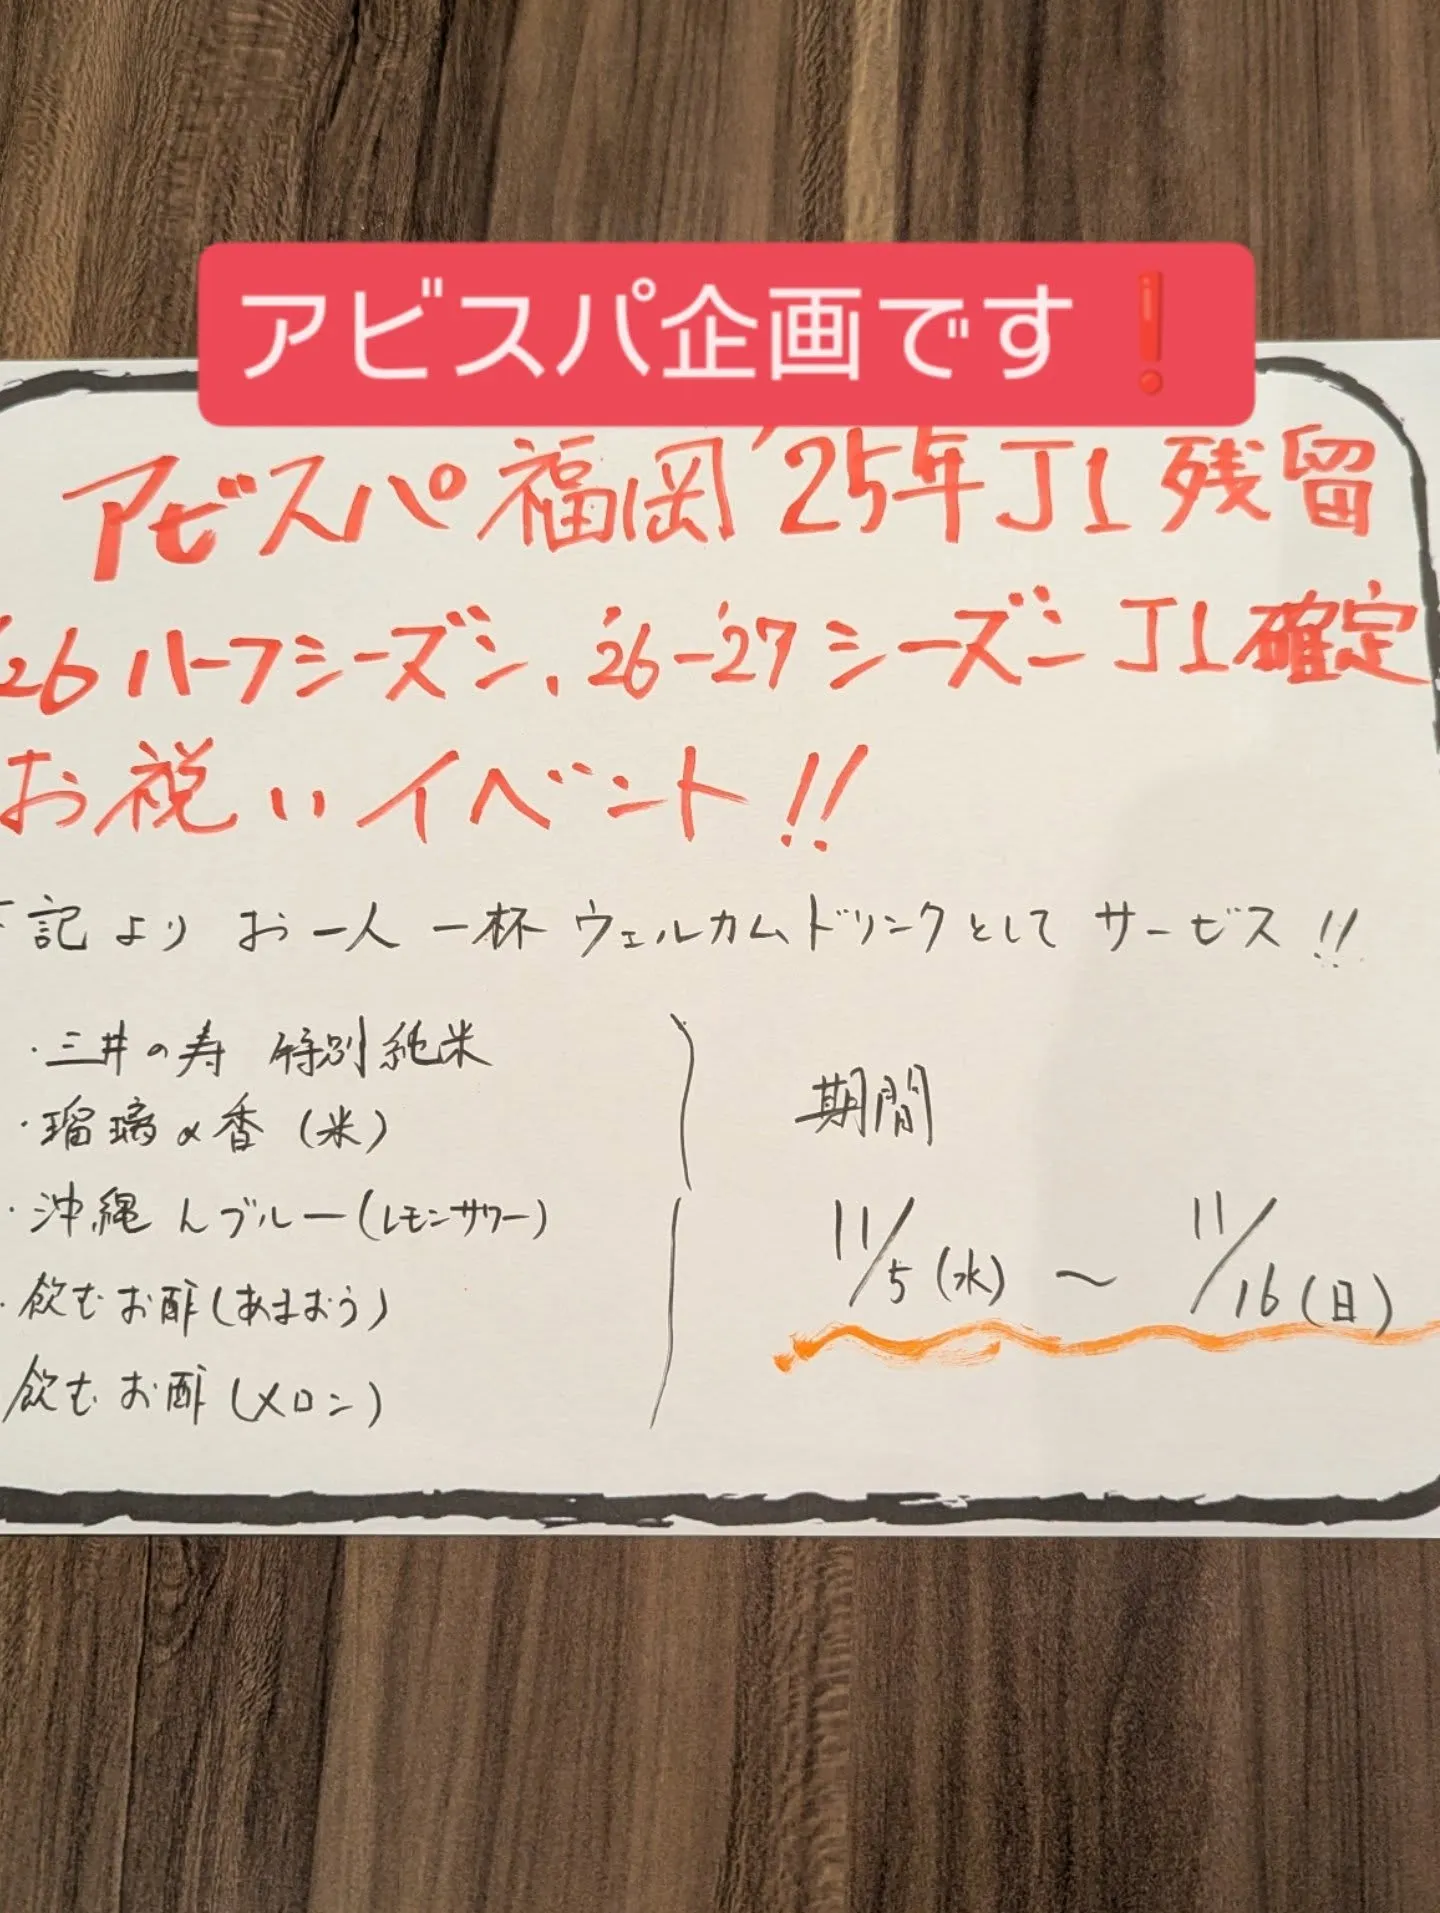 アビスパ企画です❗
アビスパ福岡 '25年J1残留
'26ハーフシーズン、'26-'27シーズンJ1確定
お祝いイベント!!
下記より お一人一杯 ウェルカムドリンクとして サービス!!
・三井の寿 特別純米
・瑠璃の香(米)
・沖縄んブルー(レモンサワー)
・飲むお酢(あまおう)
飲むお酢(メロン)
期間
11/5(水) 〜 11/16(日)